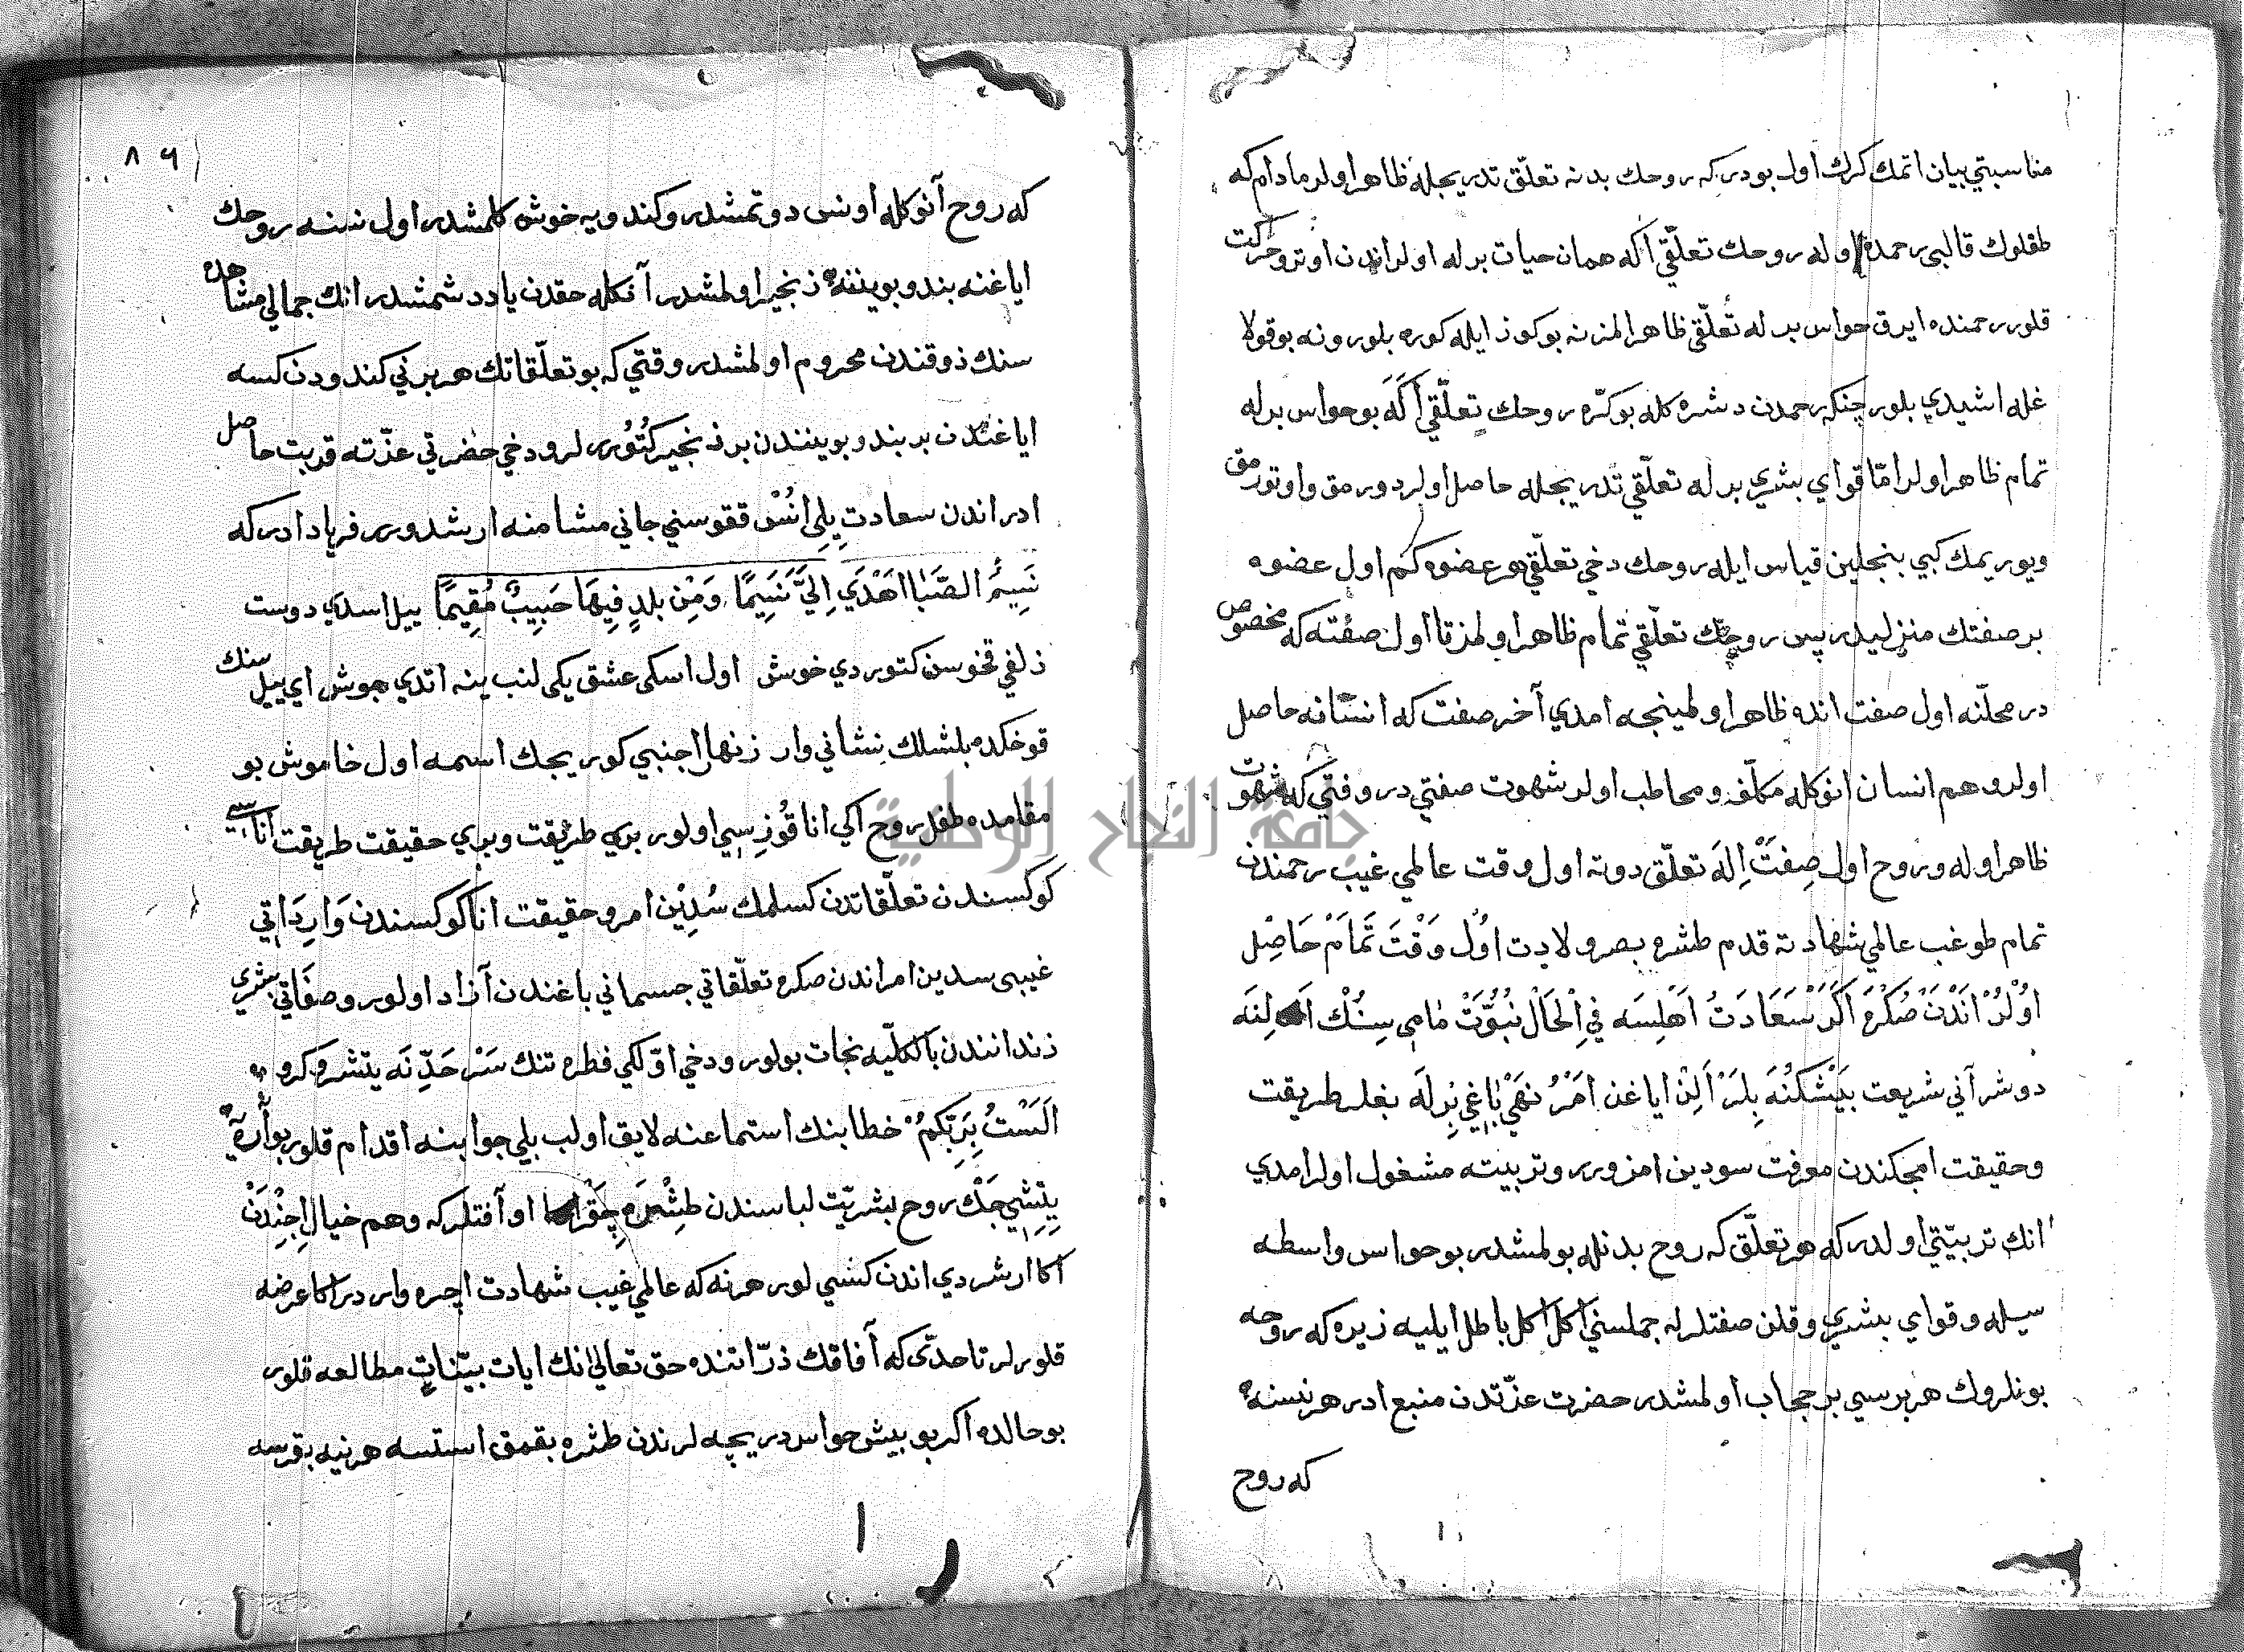 مناسبتي بيان اتمك كرك اول بودر كه روحك بدنه تعلّق تدريجله ظاهر اولر مادام كه
طفلوك قالبى رحمده اوله روحك تعلّقي اكه همان حيات برله اولر اندن اوترو حركت
قلور رحمنده ايرق حواس برله تعلّقى ظاهر المز نه بو كوز ايله كوره بلور ونه بو قولا
غله اشيدي بلور چنكه رحمدن دشره كله بو كرّه روحك تعلّقي اكَه بو حواس برله
تمام ظاهر اولر امّا قواي بشري برله تعلّقي تدريجله حاصل اولر دورمق واوتورمق
ويوريمك كبي بنجلين قياس ايله روحك دخي تعلّقي هر عضوه كم اول عضوه
بر صفتك منزليدر پس روحك تعلّقي تمام ظاهر اولمز تا اول صفته كه مخصوص
در محلّنه اول صفت انده ظاهر اولمينجه امدي آخر صفت كه انسانه حاصل
اولر وهم انسان انوكله مكلّف ومخاطب اولر شهوت صفتي در وقتي كه شهوت
ظاهر اوله وروح اول صِفَتْ اِلَه تعلّق دوته اول وقت عالمي غيب رحمندن
تمام طوغب عالمي شهادته قدم طشره بصر ولادت اوُّل وَقْتَ تَمَامْ حَاصِل
اوُلُرْ اَنْدَنْ صُكْرَه اَكَرْ سَعَادَتْ اَهْلِسَه فِي الْحَالْ نُبُوَّتْ مامى سِنُكْ اَلِنَه
دوشر آني شريعت بَيْشَكْنَه بِلَرْ اَلِنْ اياغن اَمْرُ نَهْيْ بَاغِي بِرْلَه بغلر طريقت
وحقيقت امجكندن معرفت سودين امزورر وتربيته مشغول اولر امدي
انك تربيتي اولدر كه هر تعلّق كه روح بدنله بولمشدر بو حواس واسطه
سيله وقواي بشري وقلن صفتلرله جملسني اكل اكل باطل ايليه زيره كه روحه
بونلروك هر برسي بر حجاب اولمشدر حضرت عزّتدن منبع ادر هر نسنه
كه روح
٨٦
كه روح آنوكله اونس دوتمشدر وكندويه خوش كلمشدر اول نسنه روحك
اياغنه بند وبويننه زنجير اولمشدر آنكله حقدن ياد دشمشدر انك جمالي مشاهده
سنك ذوقندن محروم اولمشدر وقتي كه بو تعلّقاتك هر برني كندودن كسه
اياغندن بر بند وبويننندن بر زنجير كُتُورر لر ودخي حضرتي عزّته قربت حاصل
ادر اندن سعادت يِلِى اُنْسْ ققوسني جاني مشامنه ارشدورر فرياد ادر كه
نَسِيمُ الصَّبَا اهْدَي اِلَيَّ نَسِيمًا وَمَنْ بلدٍ فِيهَا حَبِيبٌ مُقِيمًا ييل اسدي دوست
زلفي قخوسن كتوردي خوش اول اسكى عشق يكى لنب ينه اتدي جوش اي ييل سنك
قوخكده بلشلك نشاني وار زنهار اجنبي كوريجك اسمه اول خاموش بو
مقامده طفل روح اكي انا قُوزِسي اولور بري طريقت وبري حقيقت طريقت اناسي
كوكسندن تعلّقاتدن كسلمك سُدِيْن امر وحقيقت انا كوكسندن وَارِدَاتي
غيبى سدين امر اندن صكره تعلّقاتي جسماني باغندن آزاد اولور وصفاتي بشري
زندانندن بالكلّيه نجات بولور ودخي اوّلكي فطرتنك سَرْحَدِّنَه يتشر وكرو
اَلَسْتُ بِرَبِّكُمْ خطابنك استماعنه لايق اولب بلي جوابنه اقدام قلور بو أرة
يِتِشِيجَكْ روح بشريّت لباسندن طِشْرَه چِقَر او آفتلر كه وهم خيال اِچِنْدَنْ
اكا ارشردي اندن كسي لور هرنه كه عالمي غيب شهادت اچره وار در اكا عرضه
قلورلر تا حدّى كه آفاقك ذرّاتنده حق تعالى نك ايات بيّنات مطالعه قلور
بو حالده اكر بو بيش حواس دريچه لرندن طشره بقمق استسه هر نيه بقرسه
جامعة النجاح الوطنية